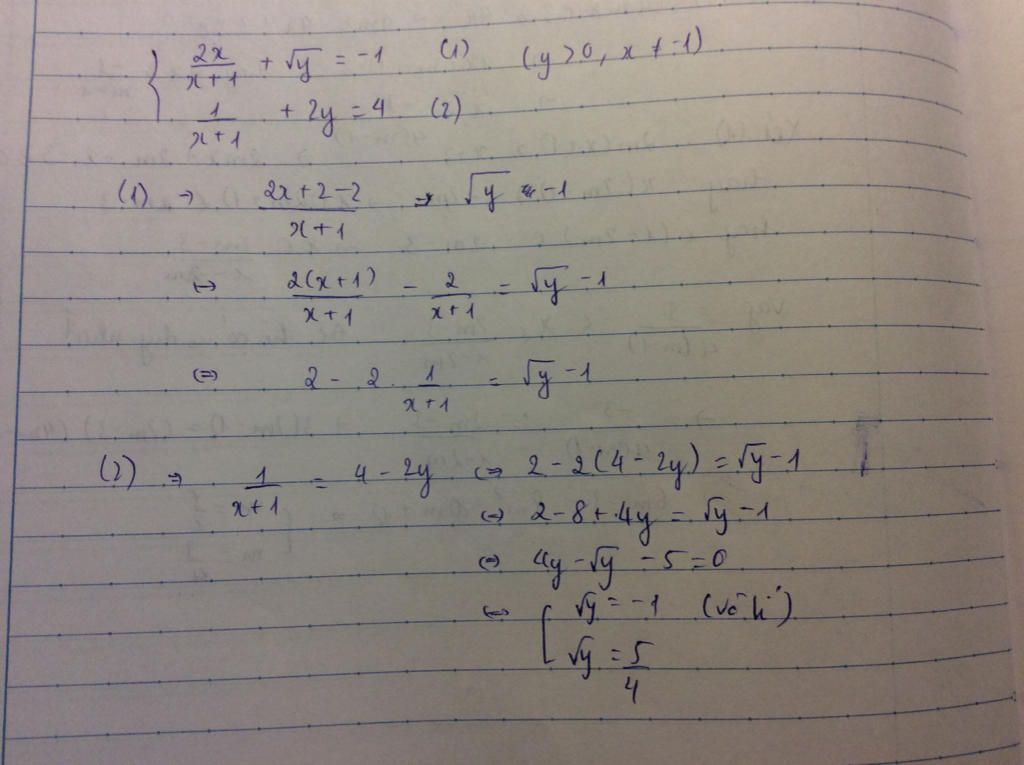 2x/(x+1) + √y = -1 (1) (y > 0, x ≠ -1)
1/(x+1) + 2y = 4 (2)
(1) → (2x+2-2)/(x+1) √y -1
↔ 2(x+1)/(x+1) - 2/(x+1) = √y -1
⇔ 2 - 2 · 1/(x+1) = √y -1
(2) → 1/(x+1) = 4 - 2y ⇔ 2-2(4-2y) = √y -1
⇔ 2-8+4y = √y -1
⇔ 4y - √y - 5 = 0
⇔ [ √y = -1 (vô lí)
√y = 5/4